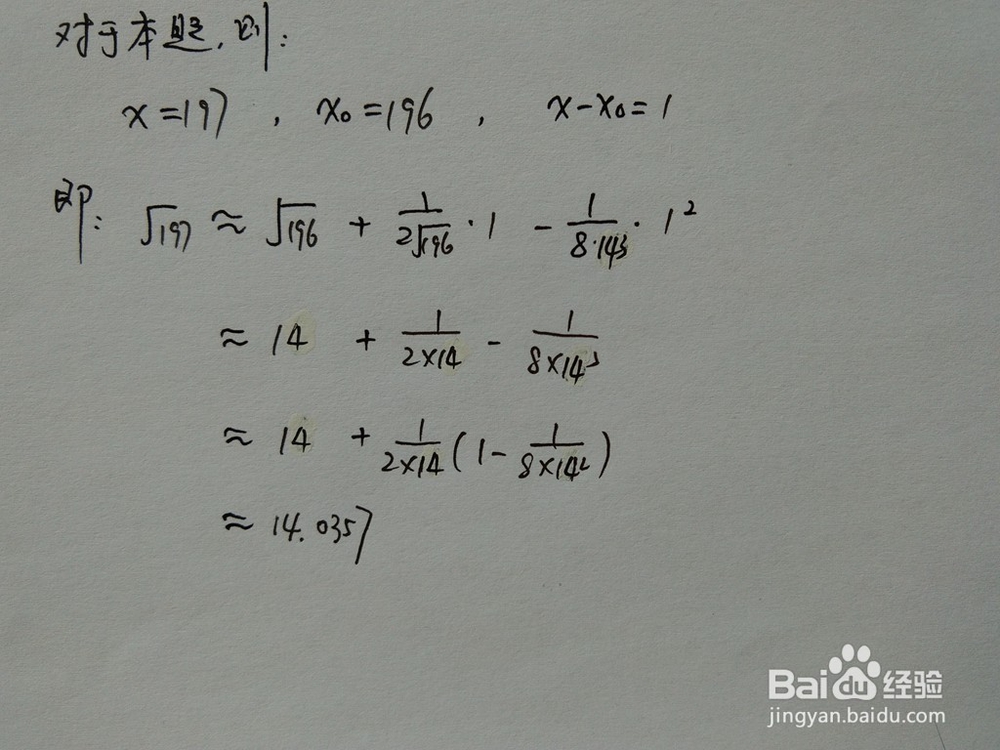 对于本题,则:
x=197 , x₀=196 , x-x₀=1
即: √197 ≈ √196 + 1/(2√196)·1 - 1/(8·14³)·1²
≈ 14 + 1/(2×14) - 1/(8×14³)
≈ 14 + 1/(2×14)(1-1/(8×14²))
≈ 14.0357
Baidu经验
jingyan.baidu.com